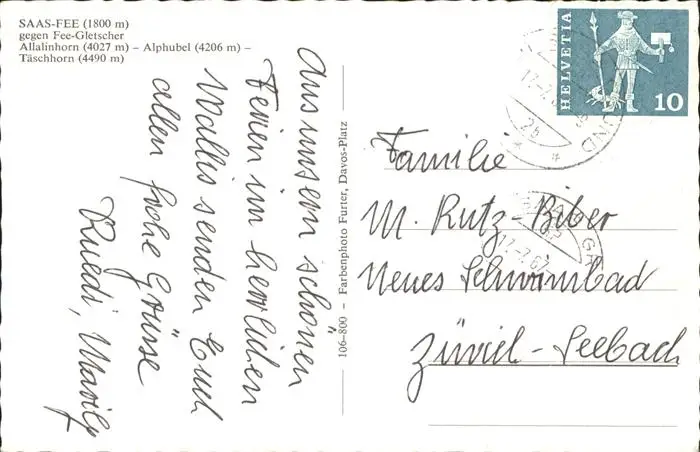 SAAS-FEE (1800 m)
gegen Fee-Gletscher
Allalinhorn (4027 m) – Alphubel (4206 m) –
Täschhorn (4490 m)
Aus unsern schönen
Ferien im herrlichen
Wallis senden Euch
allen frohe Grüsse
Ruedi,
106-800 – Farbenphoto Furter, Davos-Platz
HELVETIA
10
Familie
M. Rutz-Biber
Neues Schwimmbad
Zürich-Seebach